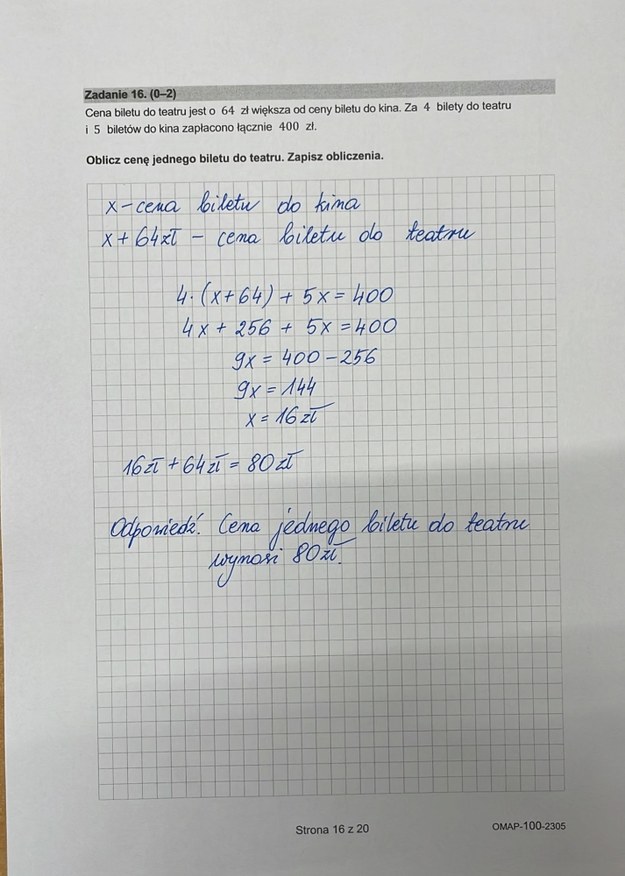 Zadanie 16. (0–2)
Cena biletu do teatru jest o 64 zł większa od ceny biletu do kina. Za 4 bilety do teatru
i 5 biletów do kina zapłacono łącznie 400 zł.
Oblicz cenę jednego biletu do teatru. Zapisz obliczenia.
x – cena biletu do kina
x + 64 zł – cena biletu do teatru
4 · (x+64) + 5x = 400
4x + 256 + 5x = 400
9x = 400 – 256
9x = 144
x = 16 zł
16 zł + 64 zł = 80 zł
Odpowiedź. Cena jednego biletu do teatru
wynosi 80 zł.
Strona 16 z 20
OMAP-100-2305